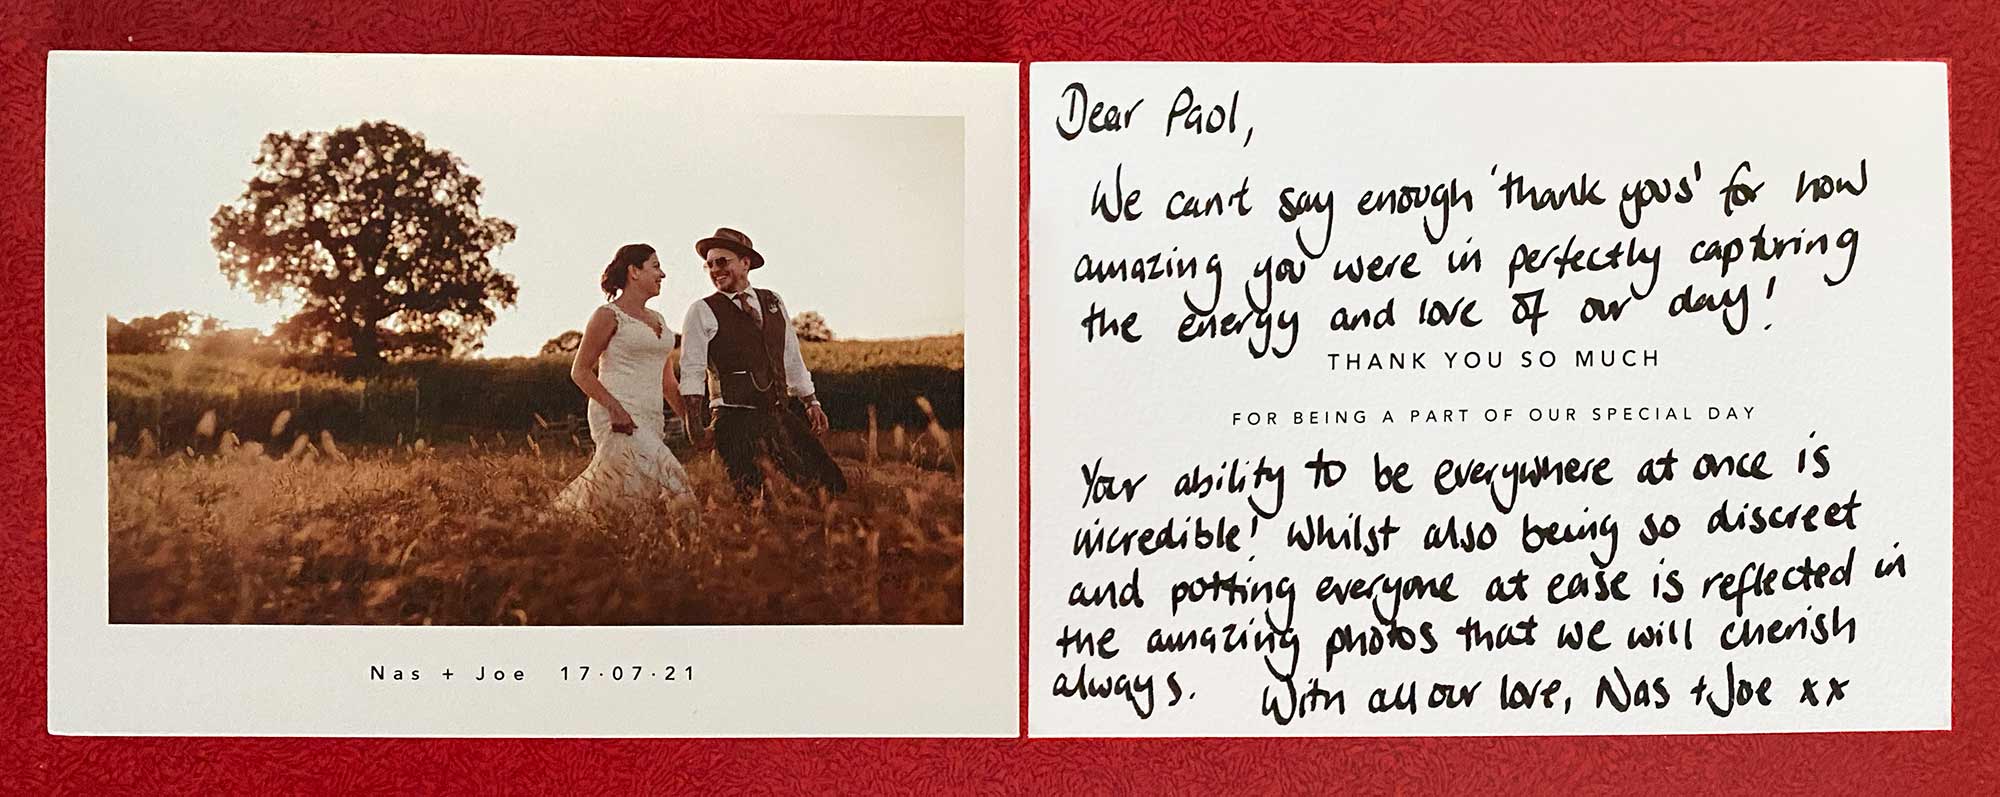 Nas + Joe 17·07·21
Dear Paul,
We can't say enough 'thank yous' for how
amazing you were in perfectly capturing
the energy and love of our day!
THANK YOU SO MUCH
FOR BEING A PART OF OUR SPECIAL DAY
Your ability to be everywhere at once is
incredible! Whilst also being so discreet
and putting everyone at ease is reflected in
the amazing photos that we will cherish
always. With all our love, Nas + Joe xx